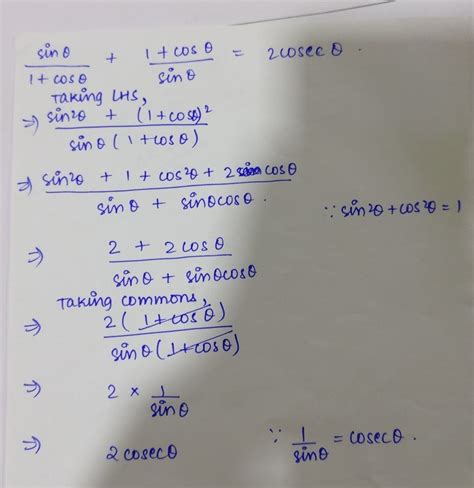 sinθ/(1+cosθ) + (1+cosθ)/sinθ = 2cosecθ.
Taking LHS,
⇒ (sin²θ + (1+cosθ)²)/(sinθ(1+cosθ))
⇒ (sin²θ + 1 + cos²θ + 2cosθ)/(sinθ + sinθcosθ). ∵ sin²θ+cos²θ=1
⇒ (2 + 2cosθ)/(sinθ + sinθcosθ)
Taking commons,
⇒ 2(1+cosθ)/(sinθ(1+cosθ))
⇒ 2 × 1/sinθ
⇒ 2cosecθ ∵ 1/sinθ = cosecθ.